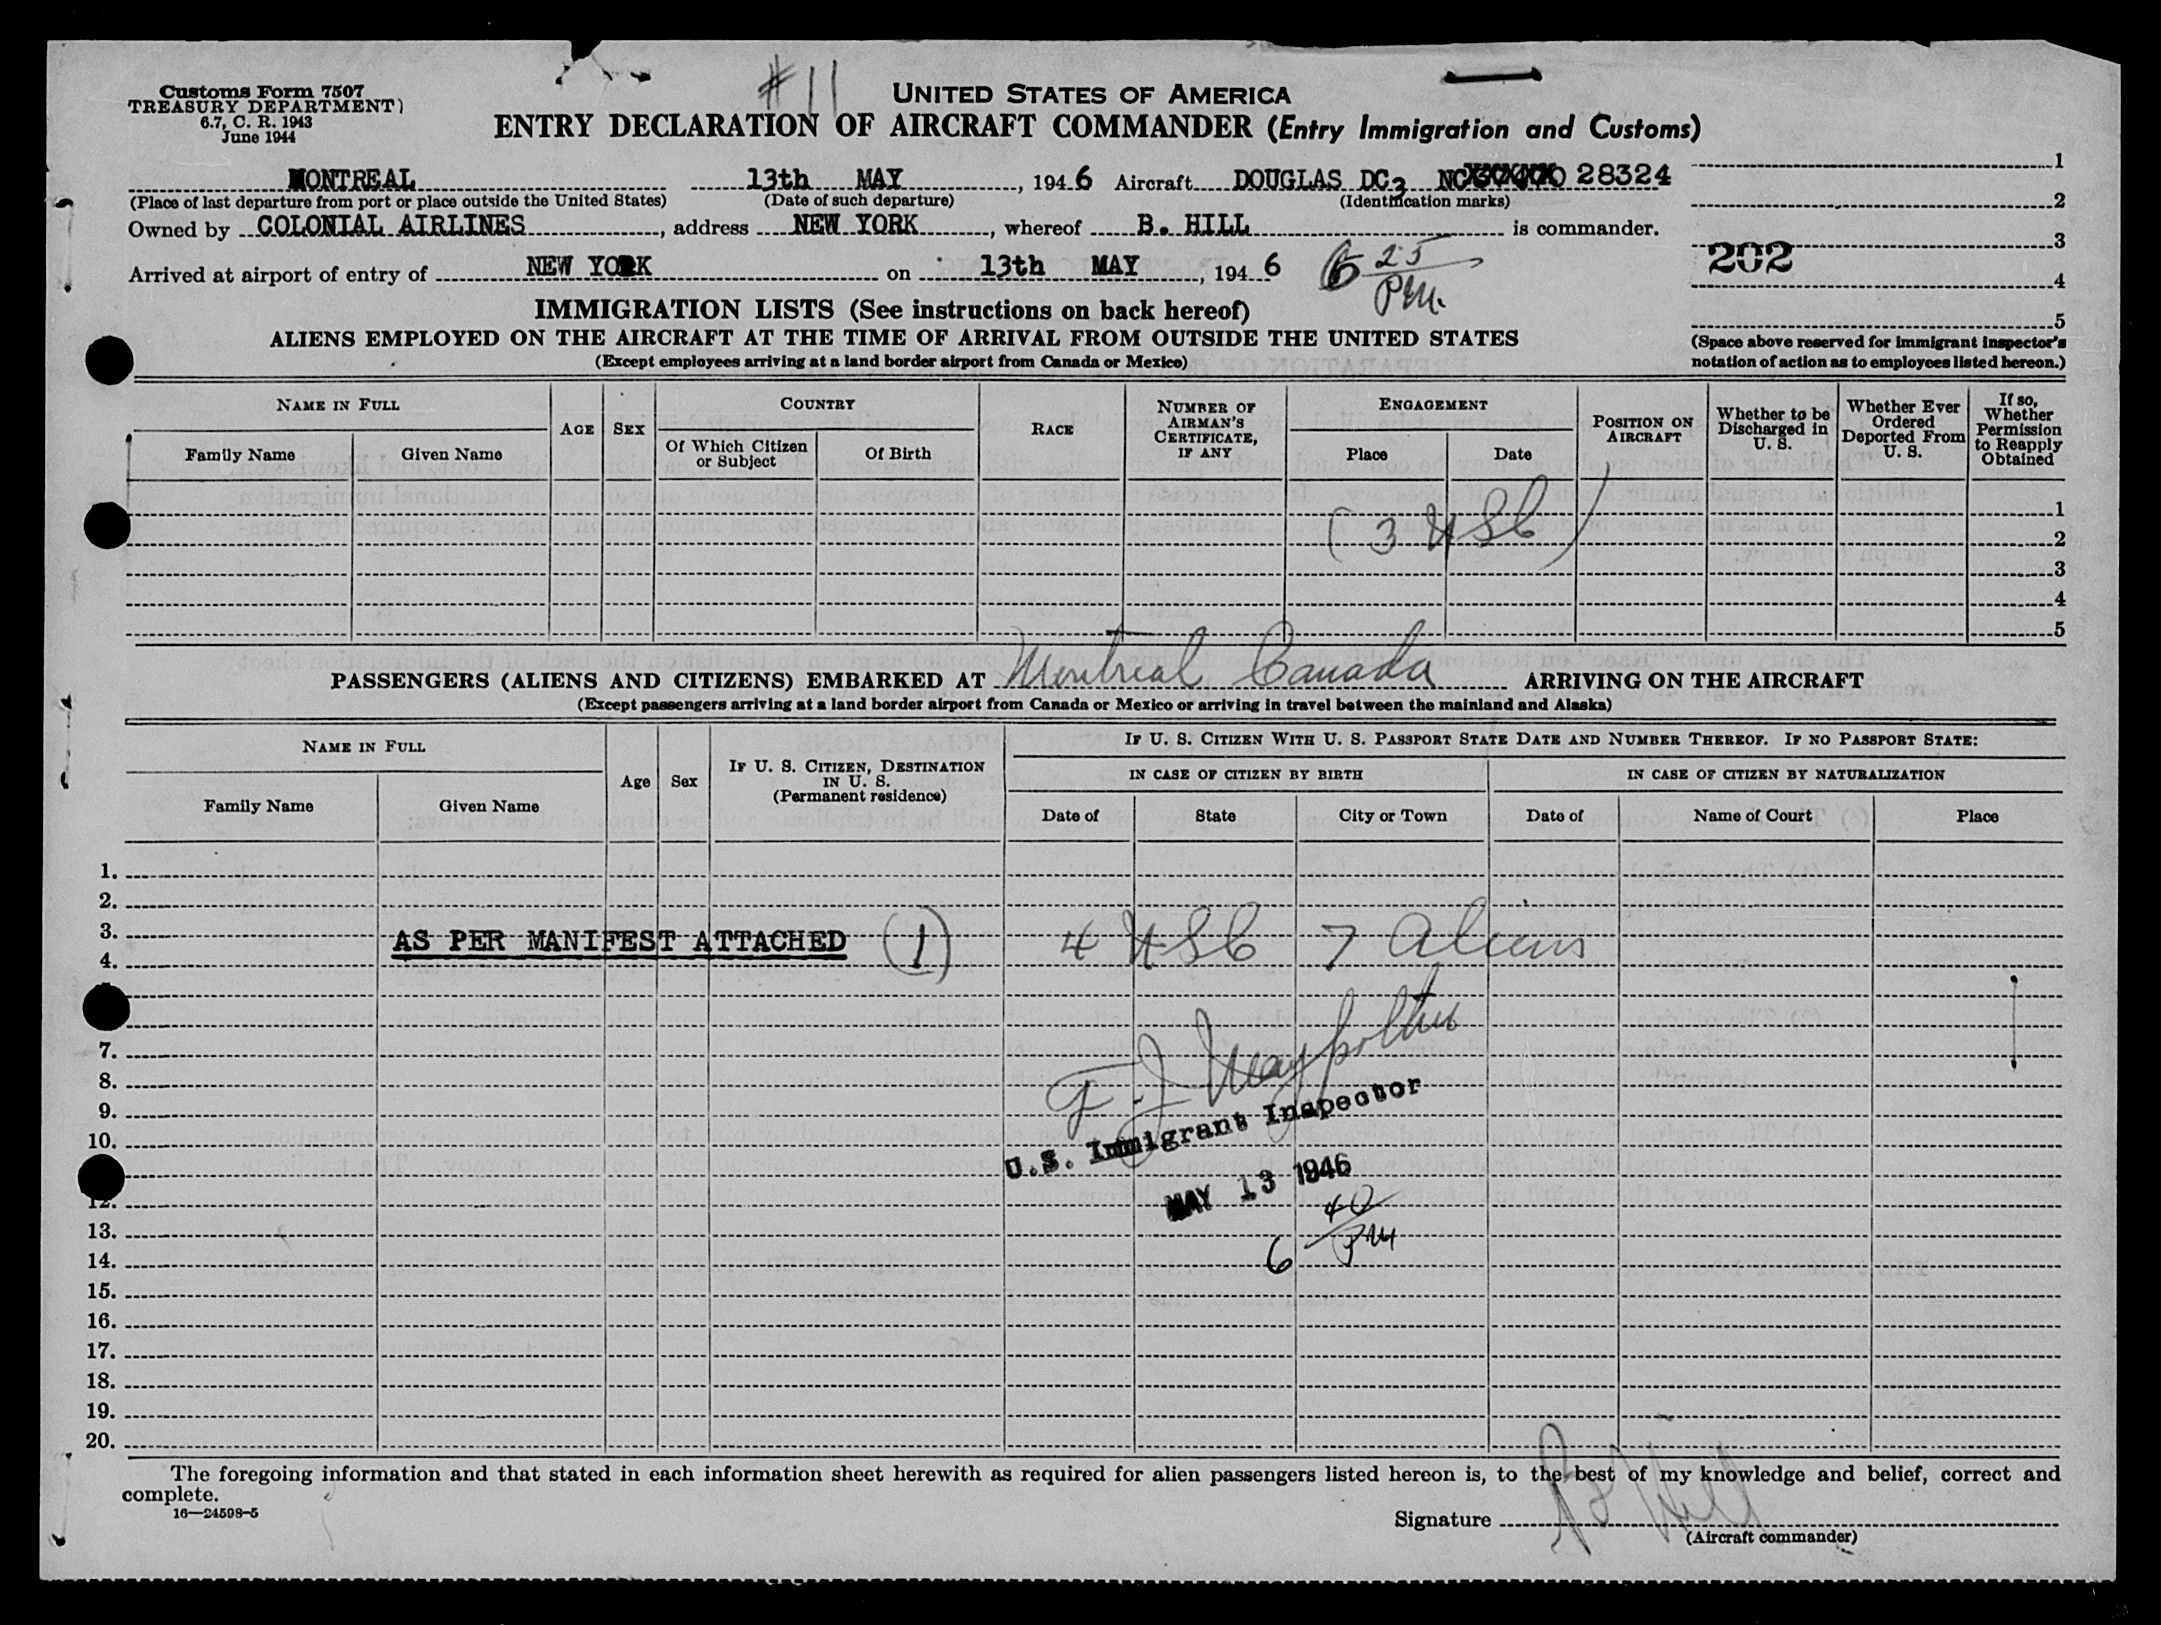 Customs Form 7507
TREASURY DEPARTMENT)
6.7, C. R. 1943
June 1944
#11
UNITED STATES OF AMERICA
ENTRY DECLARATION OF AIRCRAFT COMMANDER (Entry Immigration and Customs)
MONTREAL 13th MAY, 1946 Aircraft DOUGLAS DC3 NC 28324
(Place of last departure from port or place outside the United States) (Date of such departure) (Identification marks)
Owned by COLONIAL AIRLINES, address NEW YORK, whereof B. HILL is commander.
Arrived at airport of entry of NEW YORK on 13th MAY, 1946 6 25 PM.
1
2
3
202
4
5
(Space above reserved for immigrant inspector's notation of action as to employees listed hereon.)
IMMIGRATION LISTS (See instructions on back hereof)
ALIENS EMPLOYED ON THE AIRCRAFT AT THE TIME OF ARRIVAL FROM OUTSIDE THE UNITED STATES
(Except employees arriving at a land border airport from Canada or Mexico)
NAME IN FULL
Family Name Given Name
AGE SEX
COUNTRY
Of Which Citizen or Subject Of Birth
RACE
NUMBER OF AIRMAN'S CERTIFICATE, IF ANY
ENGAGEMENT
Place Date
POSITION ON AIRCRAFT
Whether to be Discharged in U. S.
Whether Ever Ordered Deported From U. S.
If so, Whether Permission to Reapply Obtained
1
(3 USC)
2
3
4
5
PASSENGERS (ALIENS AND CITIZENS) EMBARKED AT Montreal Canada ARRIVING ON THE AIRCRAFT
(Except passengers arriving at a land border airport from Canada or Mexico or arriving in travel between the mainland and Alaska)
NAME IN FULL
Family Name Given Name
Age Sex
IF U. S. CITIZEN, DESTINATION IN U. S. (Permanent residence)
IF U. S. CITIZEN WITH U. S. PASSPORT STATE DATE AND NUMBER THEREOF. IF NO PASSPORT STATE:
IN CASE OF CITIZEN BY BIRTH IN CASE OF CITIZEN BY NATURALIZATION
Date of State City or Town Date of Name of Court Place
1.
2.
3.
AS PER MANIFEST ATTACHED (1) 4 USC 7 Aliens
4.
7.
8.
9.
10.
U.S. Immigrant Inspector
MAY 13 1946
12.
6 40 PM
13.
14.
15.
16.
17.
18.
19.
20.
The foregoing information and that stated in each information sheet herewith as required for alien passengers listed hereon is, to the best of my knowledge and belief, correct and
complete.
16—24598-5
Signature B Hill
(Aircraft commander)